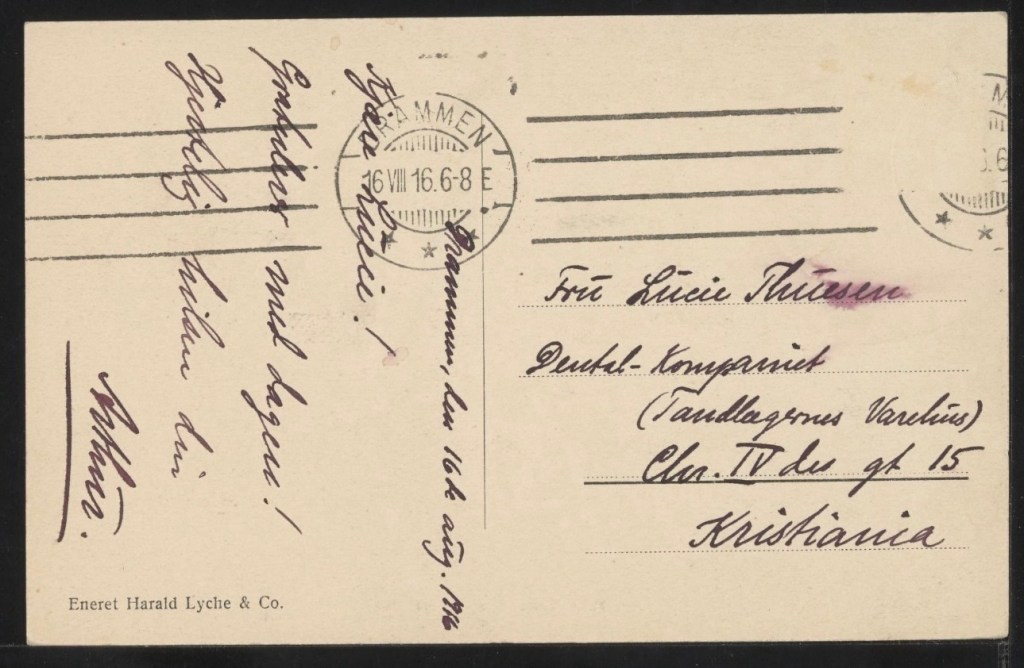 Drammen, den 16de aug. 1916
Kjære Lucie!
Gratulerer med dagen!
Hjertelig hilsen din
Arthur.
Eneret Harald Lyche & Co.
DRAMMEN
16 VIII 16. 6-8 E
Frū Lūcie Thūesen
Dental-Kompaniet
(Tandlægernes Varehūs)
Chr. IV des gt 15
Kristiania